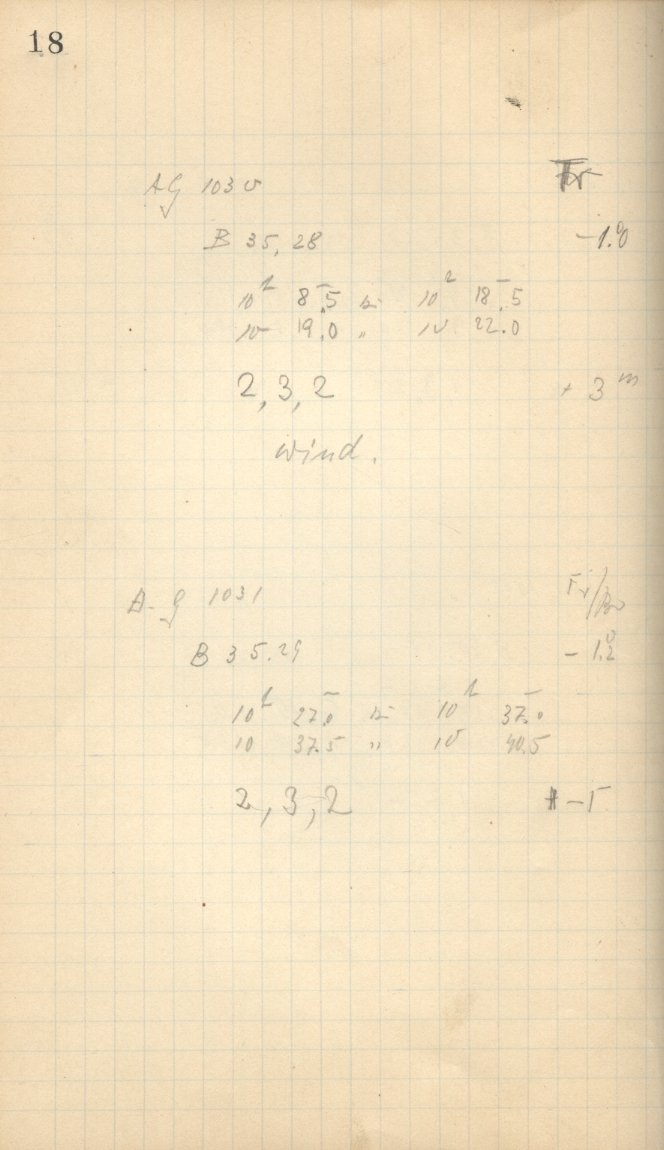 18
AG 1030 Tr
B 35, 28 -1.°0
10ʰ 8.5 bis 10ʰ 18.5
10 19.0 " 10 22.0
2, 3, 2 + 3ᵐ
Wind.
A-G 1031 Tr/Bo
B 35.29 -1.°2
10ʰ 27.0 bis 10ʰ 37.0
10 37.5 " 10 40.5
2, 3, 2